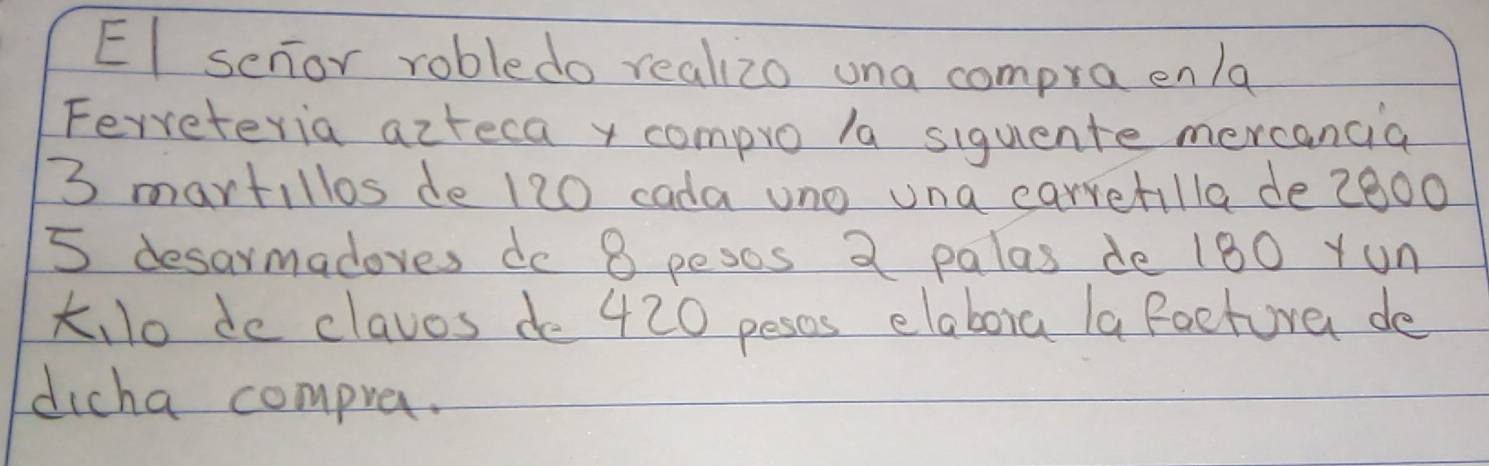 El señor robledo realizo una compra en la
Ferreteria azteca y compro la siguiente mercancia
3 martillos de 120 cada uno una carretilla de 2800
5 desarmadores de 8 pesos 2 palas de 180 y un
kilo de clavos de 420 pesos elabora la factura de
dicha compra.